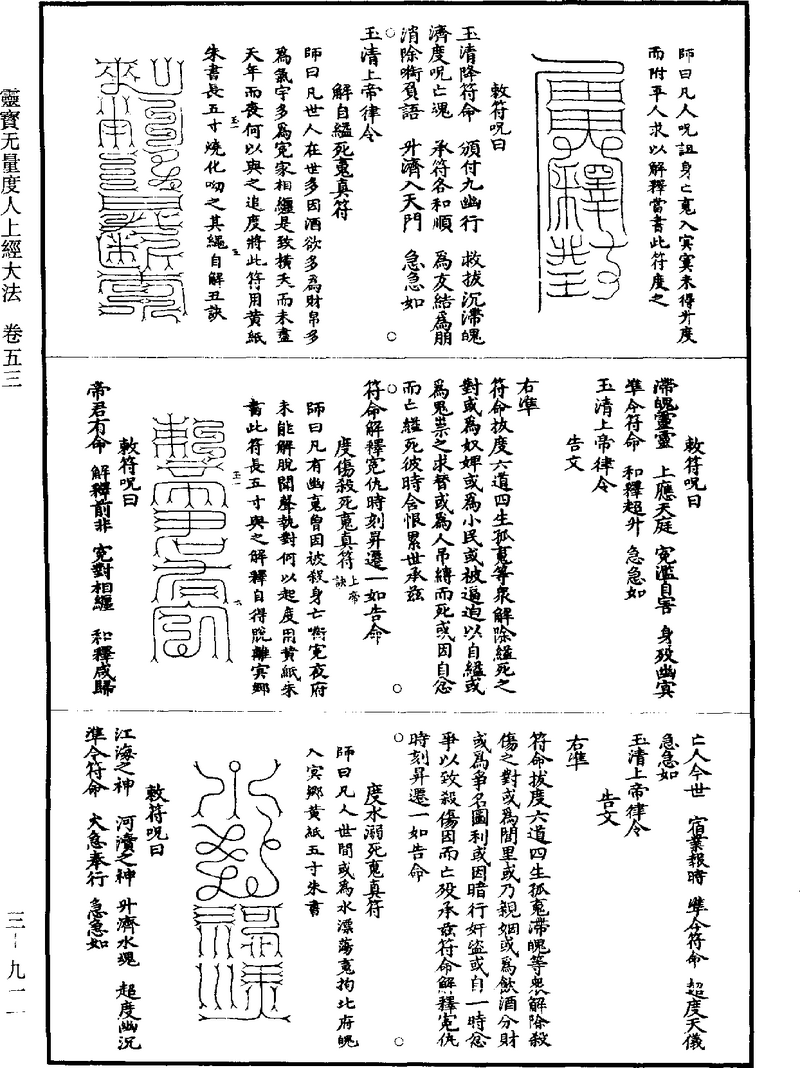 師曰凡人呪詛身亡䰟入㝠㝠未得升度
而附平人求以解釋當書此符度之
敕符呪曰
玉清降符命　頒付九幽行　救拔沉滯魄
濟度呪亡魂　承符各和順　為友結爲朋
消除嘶負語　升濟入天門　急急如
玉清上帝律令
解自縊死䰟真符
師曰凡世人在世多因酒欲多爲財帛多
爲氣字多爲寃家相纏是致橫夭而未盡
天年而喪何以與之追度將此符用黃紙
朱書長五寸燒化吻之其繩自解丑訣
敕符呪曰
滯魄靈靈　上應天庭　寃濫自害　身歿幽㝠
準令符命　和釋超升　急急如
玉清上帝律令
告文
右準
符命拔度六道四生孤䰟等衆解除縊死之
對或爲奴婢或爲小民或被逼迫以自縊或
爲鬼祟之求替或爲人吊縛而死或因自忿
而亡縊死彼時含恨累世承兹
符命解釋寃仇時刻昇遷一如告命
度傷殺死䰟真符　上帝訣
師曰凡有幽䰟曾因被殺身亡嘶寃夜府
未能解脫聞聲執對何以起度用黃紙朱
書此符長五寸與之解釋自得脫離㝠鄉
敕符呪曰
帝君有命　解釋前非　寃對相纏　和釋咸歸
亡人今世　宿業報時　準令符命　超度天儀
急急如
玉清上帝律令
告文
右準
符命拔度六道四生孤䰟滯魄等衆解除殺
傷之對或爲閭里或乃親姻或爲飲酒分財
或爲爭名圖利或因暗行奸盜或自一時忿
爭以致殺傷因而亡歿承兹符命解釋寃仇
時刻昇遷一如告命
度水溺死䰟真符
師曰凡人世間或爲水漂蕩䰟拘北府魄
入㝠鄉黃紙五寸朱書
敕符呪曰
江海之神　河瀆之神　升濟水魂　超度幽沉
準令符命　火急奉行　急急如
靈寶无量度人上經大法　卷五三
三—九一一